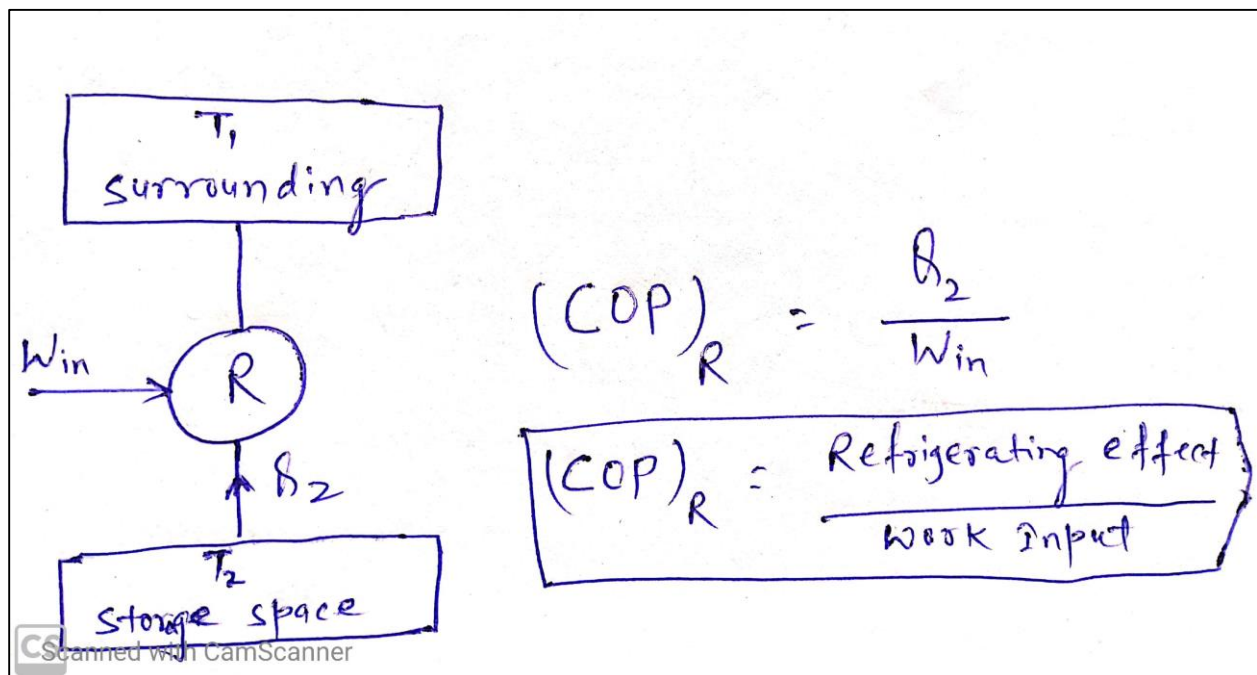 T₁
surrounding
Win
R
Q₂
T₂
storge space
(COP)R = Q₂ / Win
(COP)R = Refrigerating effect / Work Input
CS Scanned with CamScanner